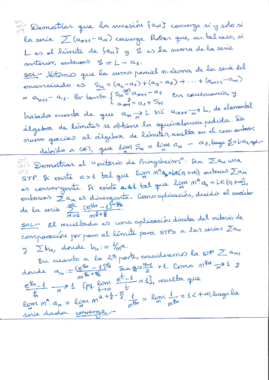 Demostrar que la sucesión {aₙ} converge si y sólo si
la serie ∑(aₙ₊₁-aₙ) converge. Probar que, en tal caso, si
L es el límite de {aₙ} y S es la suma de la serie
anterior, entonces S = L - a₁.
SOL.- Nótese que la suma parcial n-ésima de la serie del
enunciado es Sₙ = (a₂-a₁)+(a₃-a₂)+ ··· +(aₙ₊₁-aₙ)
= aₙ₊₁ - a₁. Por tanto { Sₙ = aₙ₊₁ - a₁ aₙ₊₁ = a₁ + Sₙ En consecuencia, y
habida cuenta de que aₙ → L sii aₙ₊₁ → L, de elemental
álgebra de límites se obtiene la equivalencia pedida. De
nuevo gracias al álgebra de límites, resulta en el caso anterior,
debido a (*), que lim Sₙ = lim aₙ - a₁, luego S = L - a₁
Demostrar el "criterio de Pringsheim": Sea ∑aₙ una
STP. Si existe α>1 tal que lim n^α aₙ = L ∈ [0,+∞) entonces ∑aₙ
es convergente. Si existe α≤1 tal que lim n^α aₙ = L ∈ (0,+∞],
entonces ∑aₙ es divergente. Como aplicación, decidir el carácter
de la serie
SOL.- El resultado es una aplicación directa del criterio de
comparación por paso al límite para STPs a las series ∑aₙ
y ∑bₙ, donde bₙ := 1/n^α.
En cuanto a la 2ª parte, consideremos la STP ∑aₙ,
donde
resulta que
luego la
serie dada converge.